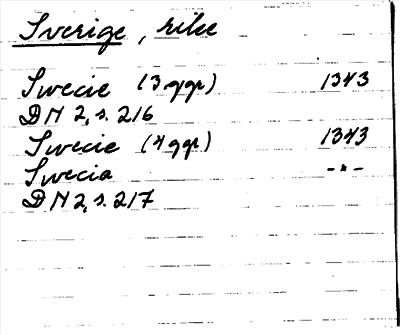 Sverige, rike
Swecie (3 ggr) 1343
DN 2, s. 216
Swecie (4 ggr) 1343
Swecia -"-
DN 2, s. 217